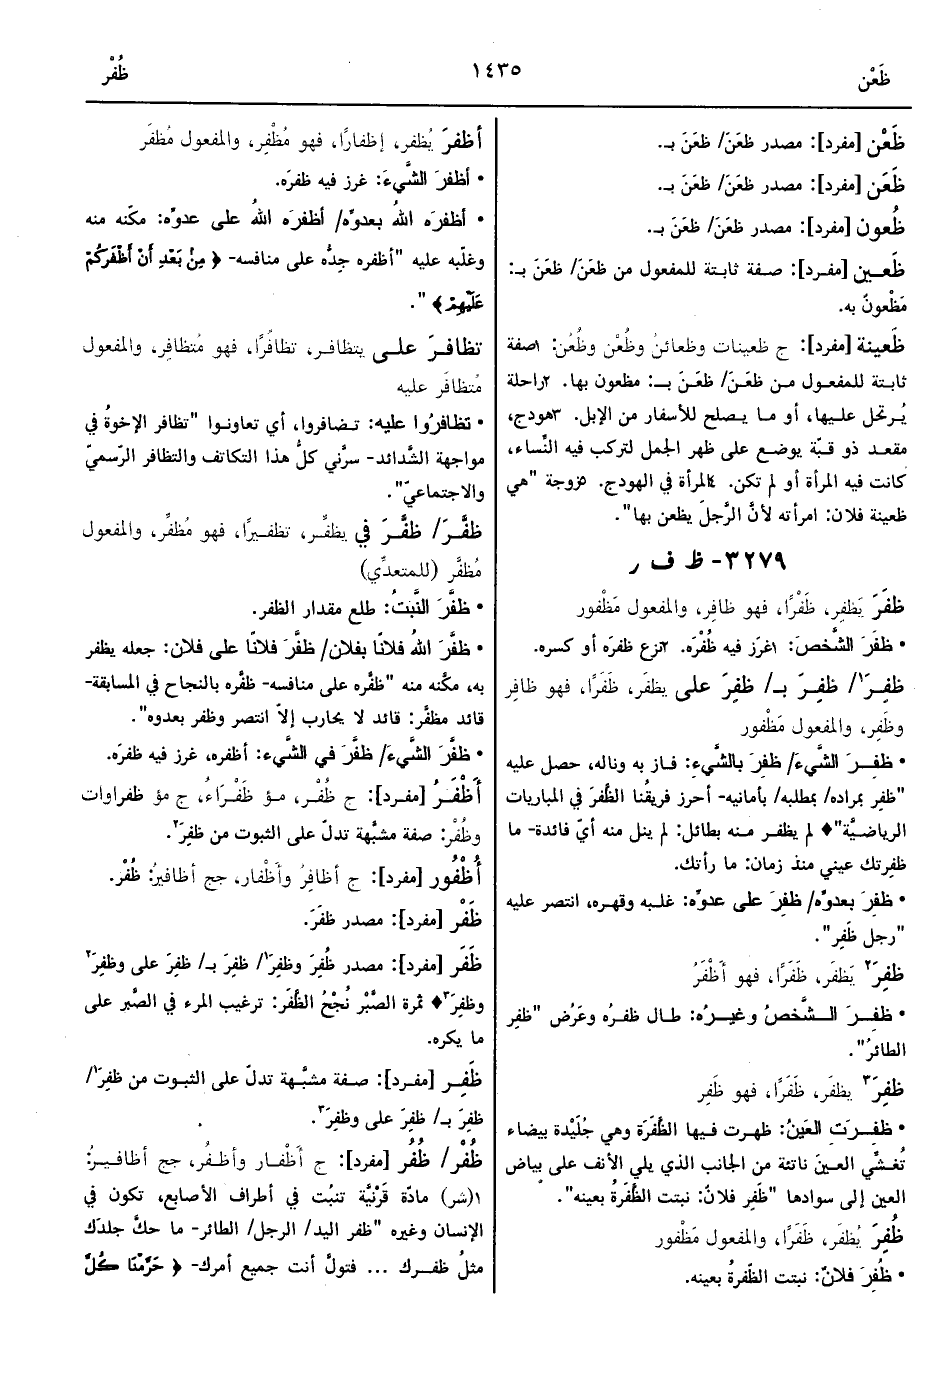 ظَعْن
١٤٣٥
ظُفْر
ظَعْن [مفرد]: مصدر ظعَنَ/ ظعَنَ بـ.
ظَعَن [مفرد]: مصدر ظعَنَ/ ظعَنَ بـ.
ظُعون [مفرد]: مصدر ظعَنَ/ ظعَنَ بـ.
ظَعين [مفرد]: صفة ثابتة للمفعول من ظعَنَ/ ظعَنَ بـ:
مَظْعونٌ به.
ظَعينة [مفرد]: ج ظعينات وظعائنُ وظُعْن وظُعُن: ١صفة
ثابتة للمفعول من ظعَنَ/ ظعَنَ بـ: مظعون بها. ٢راحلة
يُرتحل عليها، أو ما يصلح للأسفار من الإبل. ٣هودج،
مقعد ذو قبّة يوضع على ظهر الجمل لتركب فيه النِّساء،
كانت فيه المرأة أو لم تكن. ٤المرأة في الهودج. ٥زوجة "هي
ظعينة فلان: امرأته لأنَّ الرَّجلَ يظعن بها".
٣٢٧٩- ظ ف ر
ظفَرَ يَظفِر، ظَفْرًا، فهو ظافِر، والمفعول مَظْفور
• ظفَرَ الشَّخصَ: ١غرَز فيه ظُفْرَه. ٢نزع ظفرَه أو كسره.
ظفِرَ١/ ظفِرَ بـ/ ظفِرَ على يظفَر، ظَفَرًا، فهو ظافِر
وظَفِر، والمفعول مَظْفور
• ظفِرَ الشَّيءَ/ ظفِرَ بالشَّيءِ: فاز به وناله، حصل عليه
"ظفِر بمراده/ بمطلبه/ بأمانيه- أحرز فريقنا الظَّفَرَ في المباريات
الرياضيَّة" ♦ لم يظفر منه بطائل: لم ينل منه أيّ فائدة- ما
ظفِرتك عيني منذ زمان: ما رأتك.
• ظفِرَ بعدوِّه/ ظفِرَ على عدوِّه: غلبه وقهره، انتصر عليه
"رجل ظَفِر".
ظفِرَ٢ يَظفَر، ظَفَرًا، فهو أَظْفَرُ
• ظفِرَ الشَّخصُ وغيرُه: طال ظفرُه وعَرُض "ظفِر
الطائرُ".
ظفِرَ٣ يظفَر، ظَفَرًا، فهو ظَفِر
• ظفِرَت العَينُ: ظهرت فيها الظَّفَرَة وهي جُلَيْدة بيضاء
تُغشِّي العينَ ناتئة من الجانب الذي يلي الأنف على بياض
العين إلى سوادها "ظَفِر فلانٌ: نبتت الظَّفَرةُ بعينه".
ظُفِرَ يُظفَر، ظَفَرًا، والمفعول مَظْفور
• ظُفِرَ فلانٌ: نبتت الظّفَرةُ بعينه.
أظفرَ يُظفر، إظفارًا، فهو مُظْفِر، والمفعول مُظفَر
• أظفرَ الشَّيءَ: غرز فيه ظفرَه.
• أظفرَه اللهُ بعدوِّه/ أظفرَه اللهُ على عدوِّه: مكّنه منه
وغلّبه عليه "أظفره جدُّه على منافسه- ﴿ مِنْ بَعْدِ أَنْ أَظْفَرَكُمْ
عَلَيْهِمْ﴾ ".
تظافرَ على يتظافر، تظافُرًا، فهو مُتظافِر، والمفعول
مُتظافَر عليه
• تظافرُوا عليه: تضافروا، أي تعاونوا "تظافر الإخوةُ في
مواجهة الشَّدائد- سرَّني كلُّ هذا التكاتف والتظافر الرّسميّ
والاجتماعيّ".
ظفَّرَ/ ظفَّرَ في يظفِّر، تظفيرًا، فهو مُظفِّر، والمفعول
مُظفَّر (للمتعدِّي)
• ظفَّرَ النَّبتُ: طلع مقدار الظفر.
• ظفَّرَ اللهُ فلانًا بفلان/ ظفَّرَ فلانًا على فلان: جعله يظفر
به، مكّنه منه "ظفّره على منافسه- ظفّره بالنجاح في المسابقة-
قائد مظفَّر: قائد لا يحارب إلاّ انتصر وظفر بعدوه".
• ظفَّرَ الشَّيءَ/ ظفَّرَ في الشَّيء: أظفره، غرز فيه ظفرَه.
أَظْفَرُ [مفرد]: ج ظُفْر، مؤ ظَفْراءُ، ج مؤ ظفراوات
وظُفْر: صفة مشبَّهة تدلّ على الثبوت من ظفِرَ٢.
أُظْفُور [مفرد]: ج أظافِرُ وأَظْفار، جج أظافيرُ: ظُفْر.
ظَفْر [مفرد]: مصدر ظفَرَ.
ظَفَر [مفرد]: مصدر ظُفِرَ وظفِرَ١/ ظفِرَ بـ/ ظفِرَ على وظفِرَ٢
وظفِرَ٣ ♦ ثمرة الصَّبْر نُجْحُ الظَّفَر: ترغيب المرء في الصَّبر على
ما يكره.
ظَفِر [مفرد]: صفة مشبَّهة تدلّ على الثبوت من ظفِرَ١/
ظفِرَ بـ/ ظفِرَ على وظفِرَ٣.
ظُفْر/ ظُفُر [مفرد]: ج أَظْفار وأظفُر، جج أظافيرُ:
١(شر) مادّة قَرْنيَّة تنبُت في أطراف الأصابع، تكون في
الإنسان وغيره "ظفر اليد/ الرجل/ الطائر- ما حكَّ جلدَك
مثلُ ظفرك ... فتولَّ أنت جميع أمرك- ﴿ حَرَّمْنَا كُلَّ